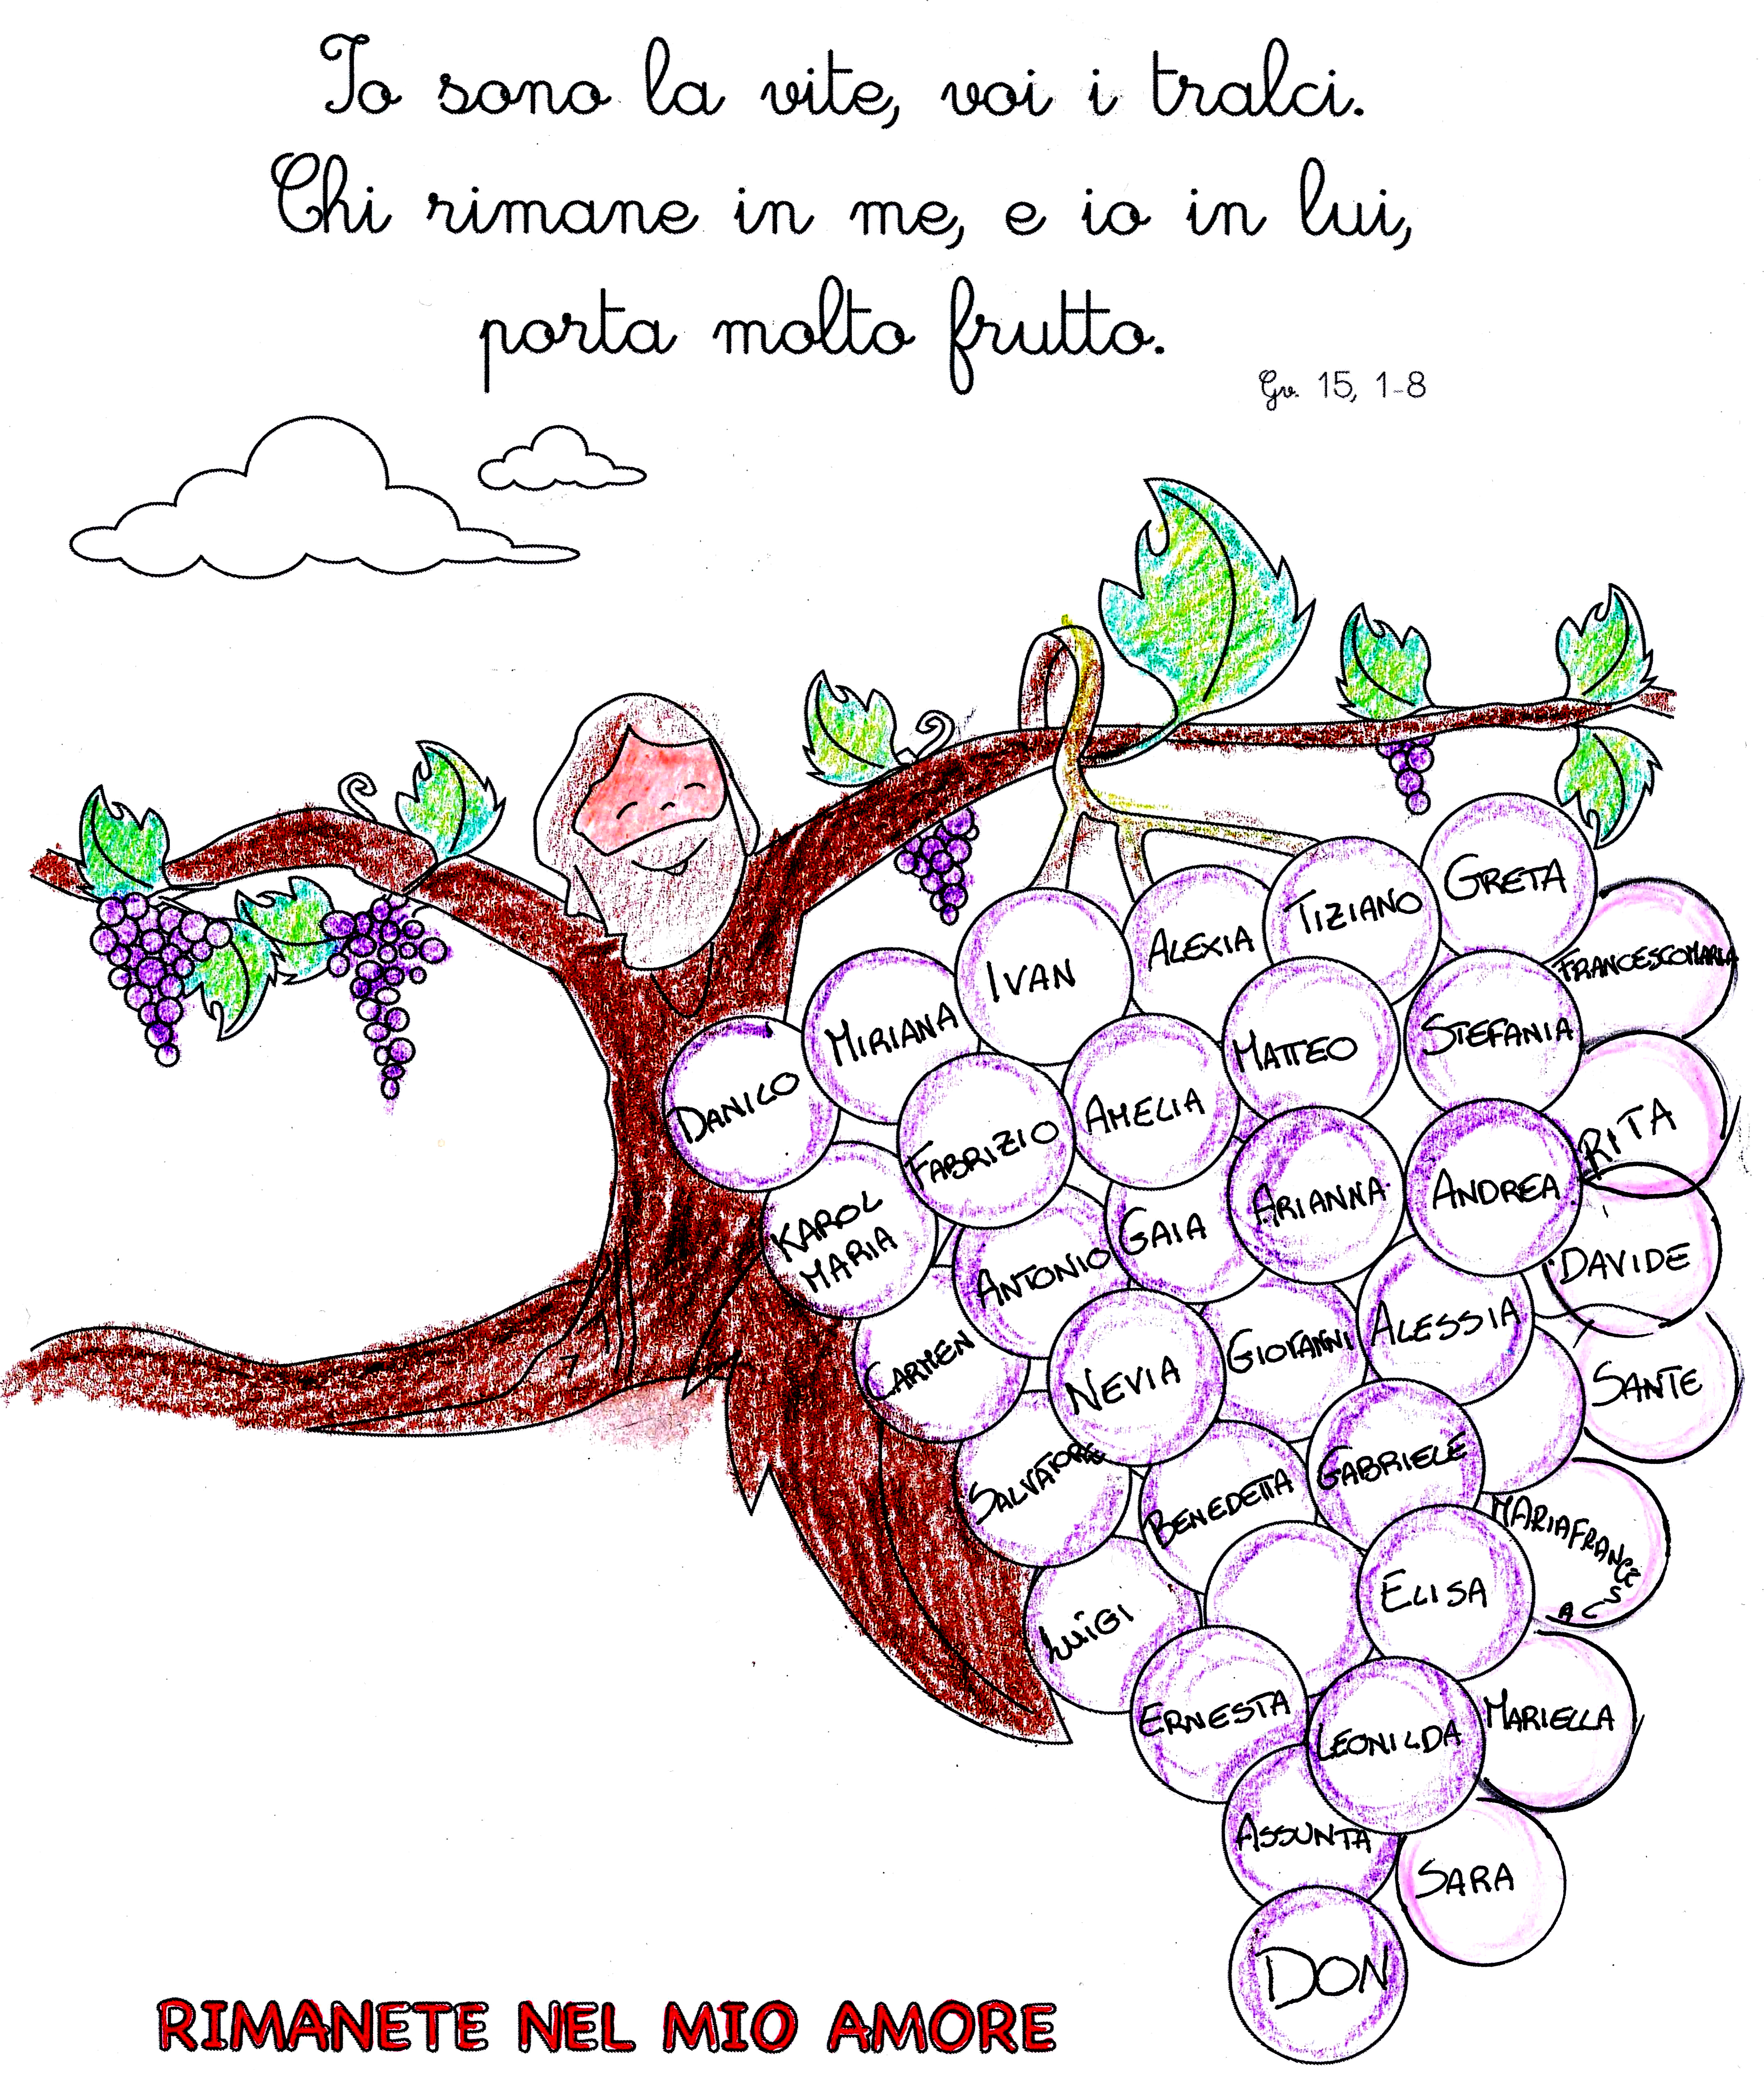 Io sono la vite, voi i tralci.
Chi rimane in me, e io in lui,
porta molto frutto.
Gv. 15, 1-8
GRETA
TIZIANO
ALEXIA
FRANCESCOMARIA
IVAN
MIRIANA
STEFANIA
MATTEO
DANILO
AMELIA
FABRIZIO
RITA
ANDREA
ARIANNA
KAROL
MARIA
GAIA
ANTONIO
DAVIDE
ALESSIA
GIOVANNI
CARMEN
NEVIA
SANTE
SALVATORE
GABRIELE
BENEDETTA
MARIAFRANCESCA
ELISA
LUIGI
ERNESTA
LEONILDA
MARIELLA
ASSUNTA
SARA
DON
RIMANETE NEL MIO AMORE